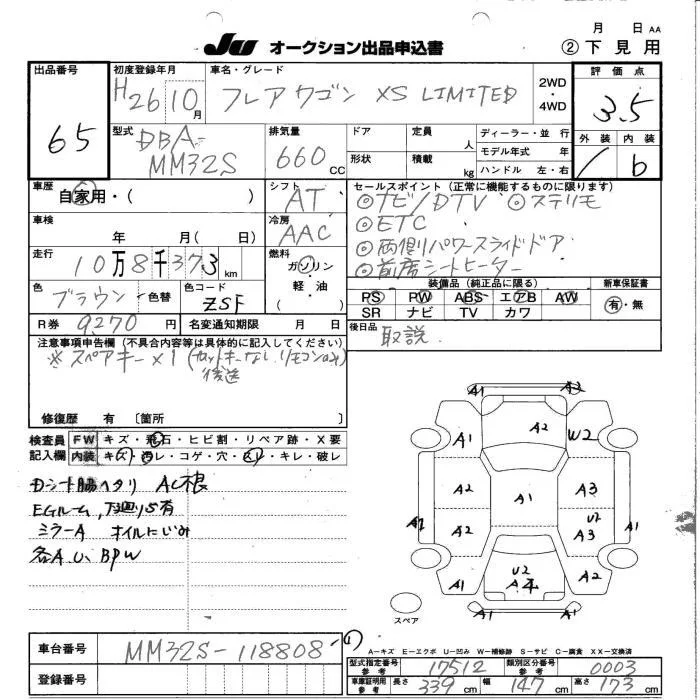 JU オークション出品申込書
月 日 AA
② 下見用
出品番号
65
初度登録年月
H26 10月
車名・グレード
フレアワゴン XS LIMITED
2WD・4WD
評価点
3.5
外装 内装
/ b
型式
DBA-
MM32S
排気量
660cc
ドア
定員 人
形状
積載 kg
ディーラー・並 行
モデル年式 年
ハンドル 左・右
車歴
自家用・( )
シフト
AT
車検
年 月( 日)
冷房
AAC
走行
10万8千373km
燃料
ガソリン
軽・油
( )
色
ブラウン 色替
色コード
ZSF
R券 9270円
名変通知期限 月 日
セールスポイント(正常に機能するものに限ります)
◎ナビ/DTV ◎ステリモ
◎ETC
◎両側パワースライドドア
◎前席シートヒーター
装備品(純正品に限る)
新車保証書
PS PW ABS エアB AW
有・無
SR ナビ TV カワ
後日品
取説
注意事項申告欄(不具合内容等は具体的に記入してください)
※スペアキー×1(カットキーなし リモコンのみ)
後送
修復歴 有〔箇所 〕
検査員 FW キズ・飛石・ヒビ割・リペア跡・X要
記入欄 内装 キズ・汚レ・コゲ・穴・スレ・キレ・破レ
Dシート脇ヘタリ AC根
EGルーム,下廻りS有
ミラーA オイルにじみ
各A.U、BPW
A1 A2
A1 A2 W2
A2 A1 A3
A2 A2 U2 A3 A1
A1 U2 A4 A2
A1 A1
スペア
A−キズ E−エクボ U−凹み W−補修跡 S−サビ C−腐食 XX−交換済
車台番号
MM32S-118808
登録番号
型式指定番号 参考 17512 類別区分番号 参考 0003
車庫証明用 参考 長さ 339cm 幅 147cm 高さ 173cm